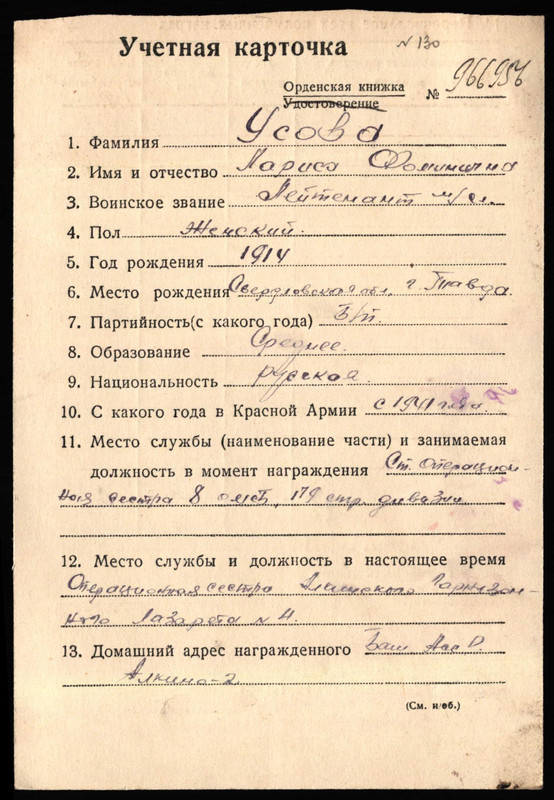 Учетная карточка N 130
Орденская книжка
Удостоверение № 966956
1. Фамилия Усова
2. Имя и отчество Лариса Фоминична
3. Воинское звание Лейтенант м/сл.
4. Пол Женский.
5. Год рождения 1914
6. Место рождения Свердловская обл. г.
7. Партийность(с какого года) Б/п.
8. Образование Среднее.
9. Национальность русская.
10. С какого года в Красной Армии с 1941 года.
11. Место службы (наименование части) и занимаемая
должность в момент награждения Ст. Операцион-
ная сестра 8 179 стр. дивизии
12. Место службы и должность в настоящее время
Операционная сестра Гарнизон-
ного Лазарета N
13. Домашний адрес награжденного Баш. Асс Р.
Алкино-2
(См. н/об.)